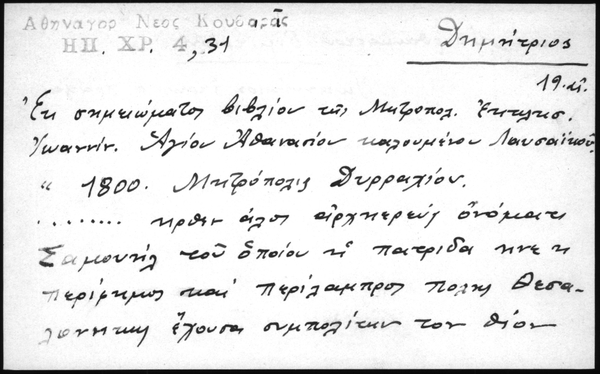 Αθηναγορ Νεος Κουβαρᾶς
ΗΠ. ΧΡ. 4, 31
Δημήτριος
19. αἰ.
Ἐκ σημειώματος βιβλίου τῆς Μητροπολ. Ἐκκλησ.
Ἰωαννίν. Ἁγίου Ἀθανασίου καλουμένου Λαυσαϊκοῦ.
" 1800. Μητρόπολις Δυρραχίου.
......... ηρθεν άλος αρχηερεύς ὀνόματι
Σαμουήλ τοῦ ὁποίου ἡ πατρίδα ηνε η
περίφημος καί περίλαμπρος πολης Θεσα-
λονηκης ἔχουσα συμπολίτην τον θίον